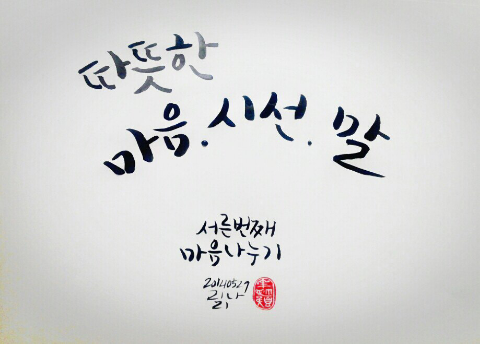 따뜻한
마음.시선.말
서른번째
마음나누기
20140527